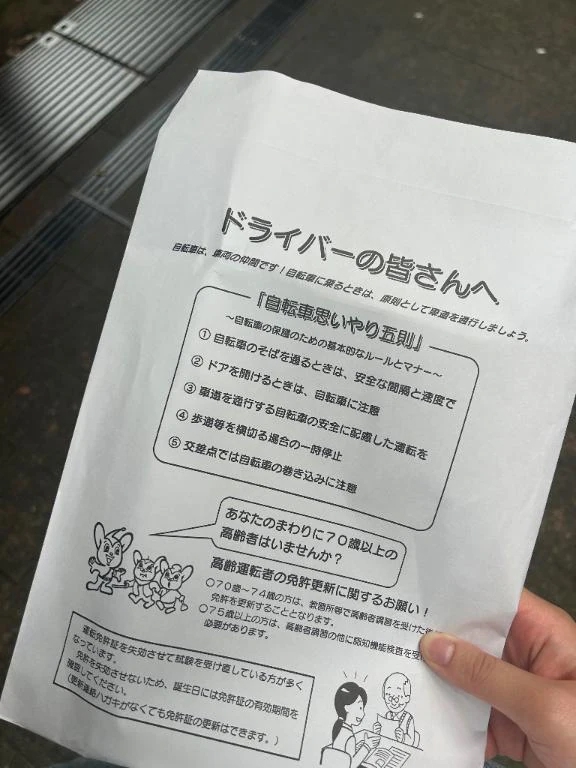 ドライバーの皆さんへ
自転車は、車両の仲間です！自転車に乗るときは、原則として車道を通行しましょう。
「自転車思いやり五則」
～自転車の保護のための基本的なルールとマナー～
① 自転車のそばを通るときは、安全な間隔と速度で
② ドアを開けるときは、自転車に注意
③ 車道を通行する自転車の安全に配慮した運転を
④ 歩道等を横切る場合の一時停止
⑤ 交差点では自転車の巻き込みに注意
あなたのまわりに７０歳以上の
高齢者はいませんか？
高齢運転者の免許更新に関するお願い！
○７０歳～７４歳の方は、教習所等で高齢者講習を受けた後
免許を更新することとなります。
○７５歳以上の方は、高齢者講習の他に認知機能検査を受け
必要があります。
運転免許証を失効させて試験を受け直している方が多く
なっています。
免許を失効させないため、誕生日には免許証の有効期間を
確認してください。
（更新連絡ハガキがなくても免許証の更新はできます。）